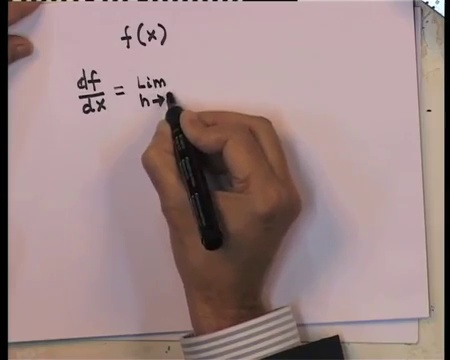 f(x)
df/dx = Lim
h→